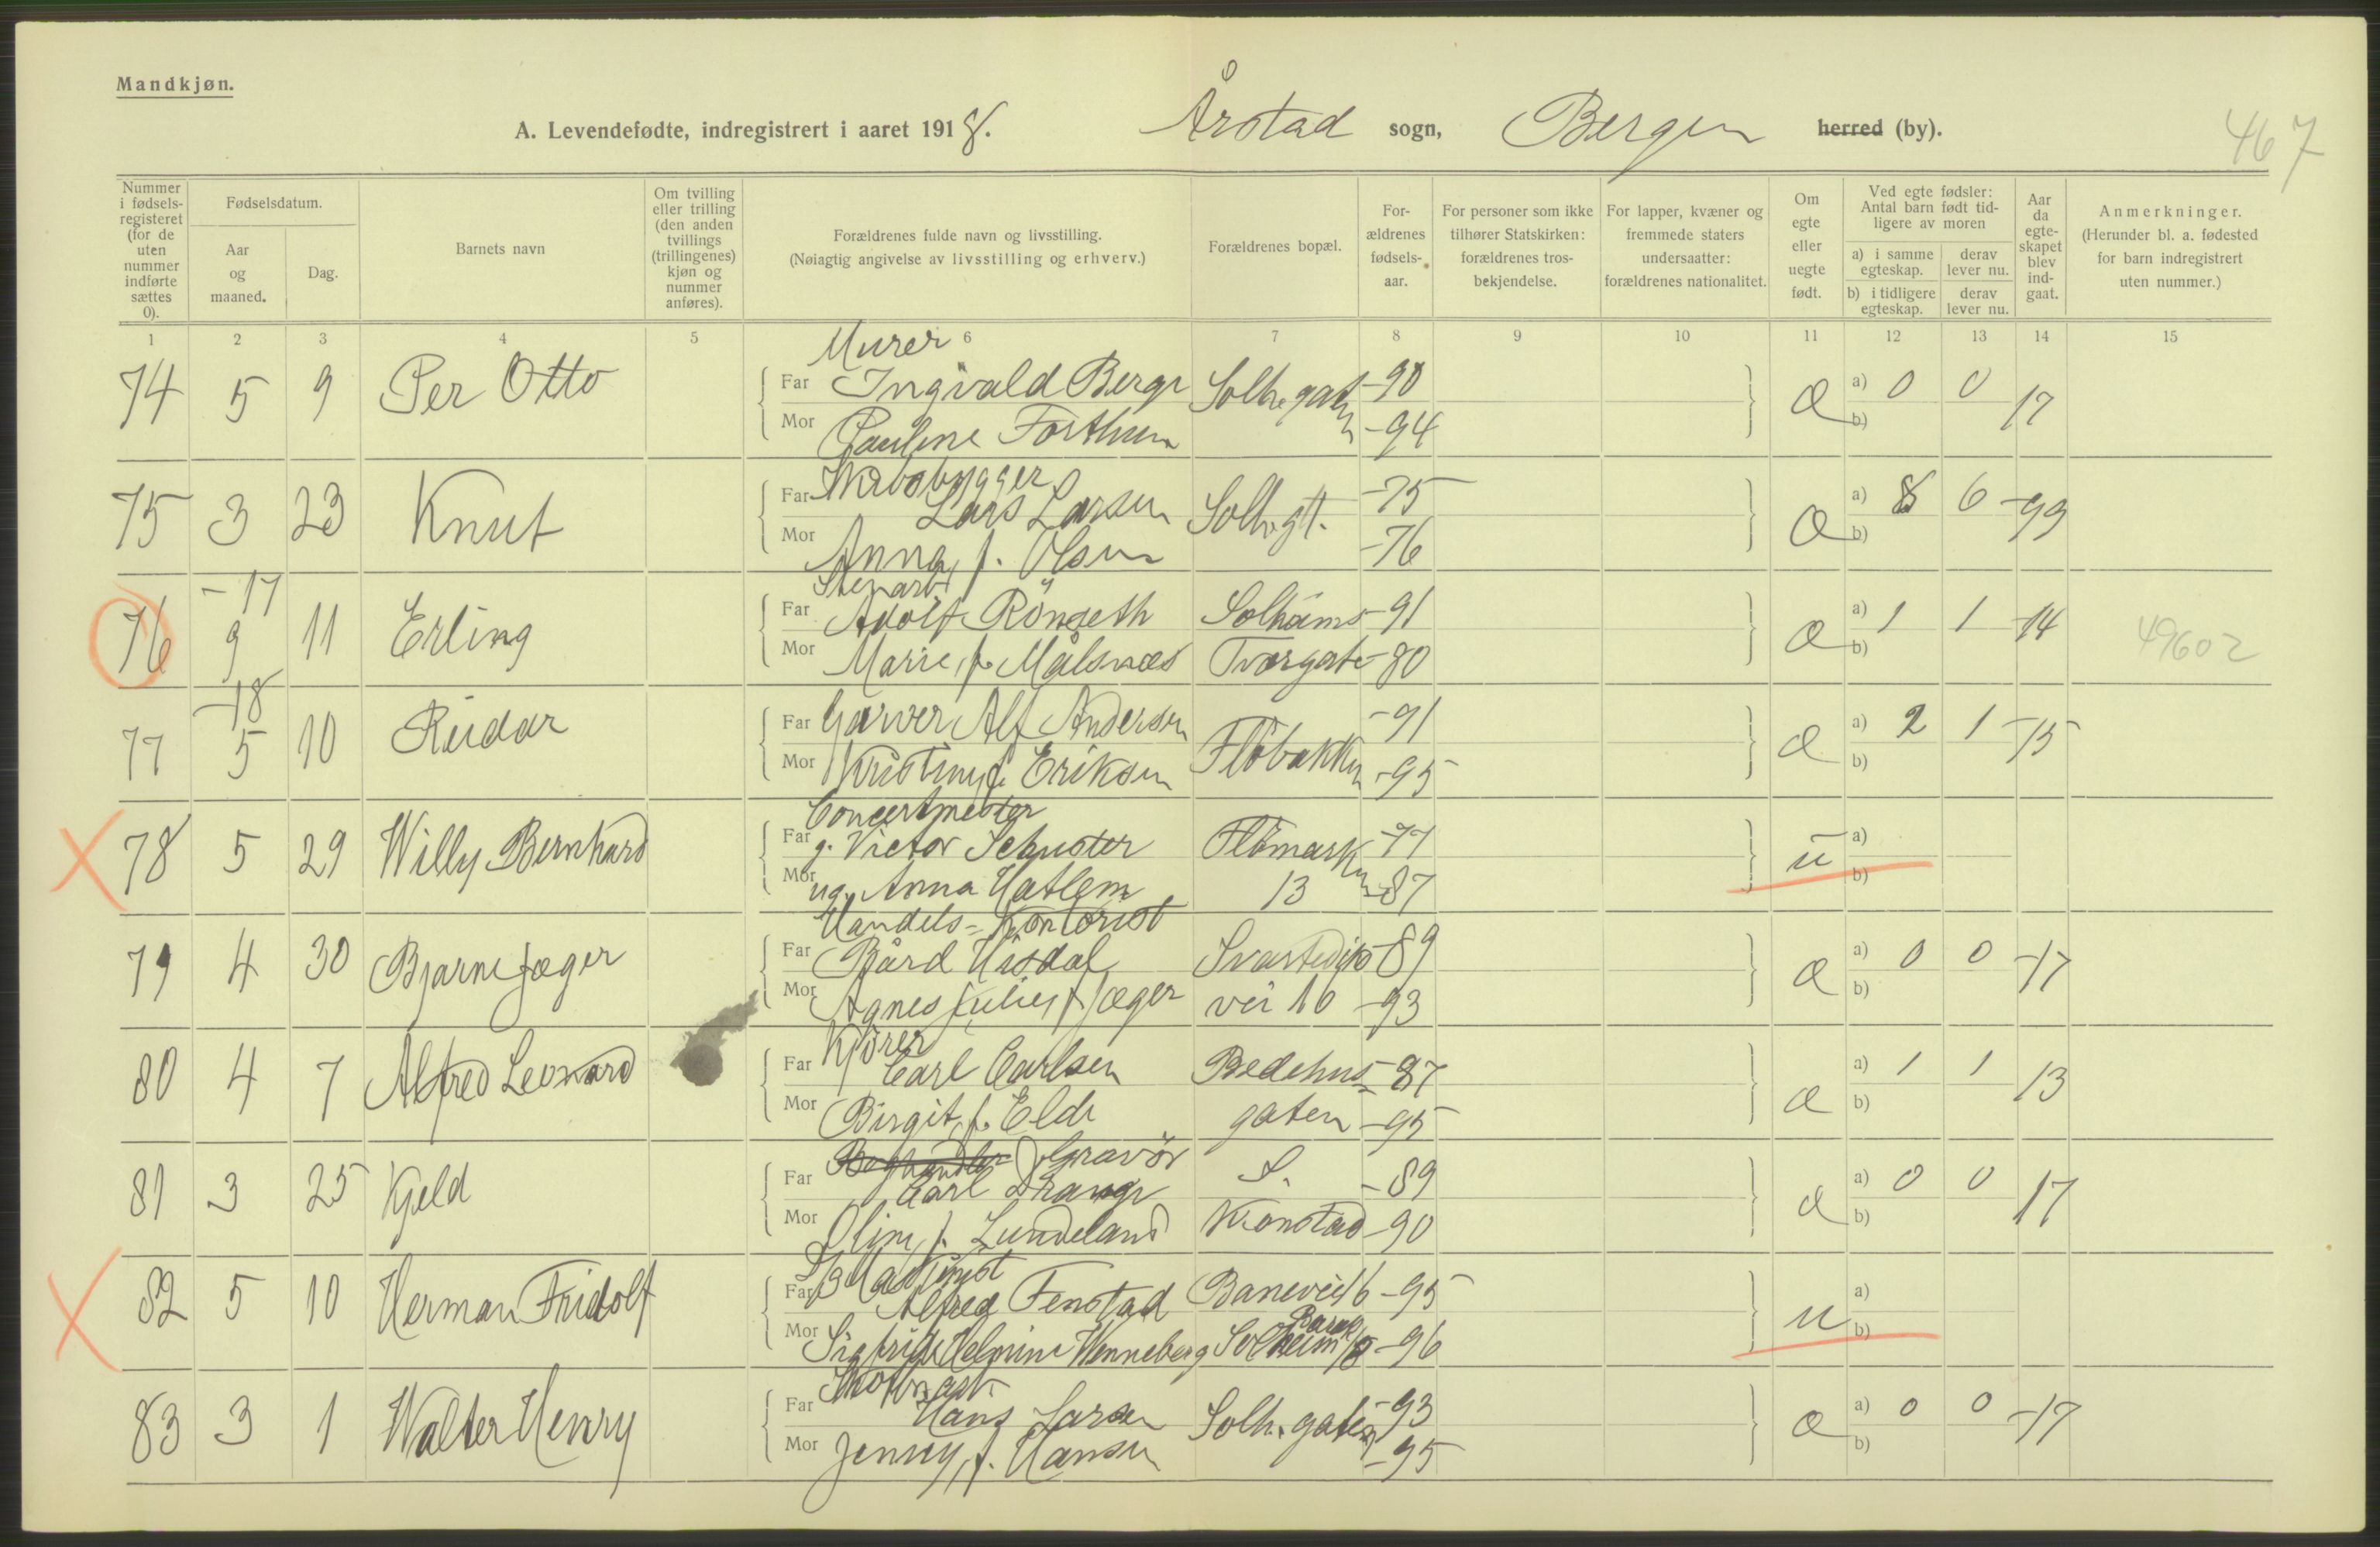 Mandkjøn.
A. Levendefødte, indregistrert i aaret 1918. Årstad sogn, Bergen herred (by).
467
Nummer i fødselsregisteret (for de uten nummer indførte sættes 0).
Fødselsdatum.
Aar og maaned.
Dag.
Barnets navn
Om tvilling eller trilling (den anden tvillings (trillingenes) kjøn og nummer anføres).
Forældrenes fulde navn og livsstilling.
(Nøiagtig angivelse av livsstilling og erhverv.)
Forældrenes bopæl.
Forældrenes fødselsaar.
For personer som ikke tilhører Statskirken: forældrenes trosbekjendelse.
For lapper, kvæner og fremmede staters undersaatter: forældrenes nationalitet.
Om egte eller uegte født.
Ved egte fødsler: Antal barn født tidligere av moren
a) i samme egteskap.
derav lever nu.
b) i tidligere egteskap.
derav lever nu.
Aar da egteskapet blev indgaat.
Anmerkninger.
(Herunder bl. a. fødested for barn indregistrert uten nummer.)
1 2 3 4 5 6 7 8 9 10 11 12 13 14 15
Murer
74 5 9 Per Otto Far Ingvald Berge Solh. gaten -90 e a) 0 0 17
Mor Pauline Forthun -94 b)
Skibsbygger
75 3 23 Knut Far Lars Larsen Solh. gt. -75 e a) 8 6 -99
Mor Anna, f. Olsen -76 b)
-17
Stenarb.
76 9 11 Erling Far Adolf Rönseth Solheims -91 e a) 1 1 -14 49602
Mor Marie, f. Målsnæs Tvergate -80 b)
-18
77 5 10 Reidar Far Garver Alf Andersen Flöbakken -91 e a) 2 1 -15
Mor Kristiny f. Eriksen -95 b)
Concertmester
78 5 29 Willy Bernhard Far g. Victor Schuster Flömarken -77 u a)
Mor ug. Anna Hatlem 13 -87 b)
Handels-Kontorist
79 4 30 Bjarne Jæger Far Bård Hisdal Svartediks -89 e a) 0 0 -17
Mor Agnes Julie, f. Jæger vei 16 -93 b)
Kjörer
80 4 7 Alfred Leonard Far Carl Carlsen Bedehus- -87 e a) 1 1 13
Mor Birgit, f. Elde gaten -95 b)
Boghandler Gravör
81 3 25 Kjeld Far Carl Prange S. -89 e a) 0 0 17
Mor Oline, f. Lundeland Kronstad -90 b)
Maskinist
82 5 10 Herman Fridolf Far Alfred Fenstad Baneveil 6 -95 u a)
Mor Sigfride Helmine Wenneberg Solheim Barak 18 -96 b)
83 3 1 Walter Henry Far Hans Larsen Solh. gaten -93 e a) 0 0 -17
Mor Jenny, f. Hansen -95 b)